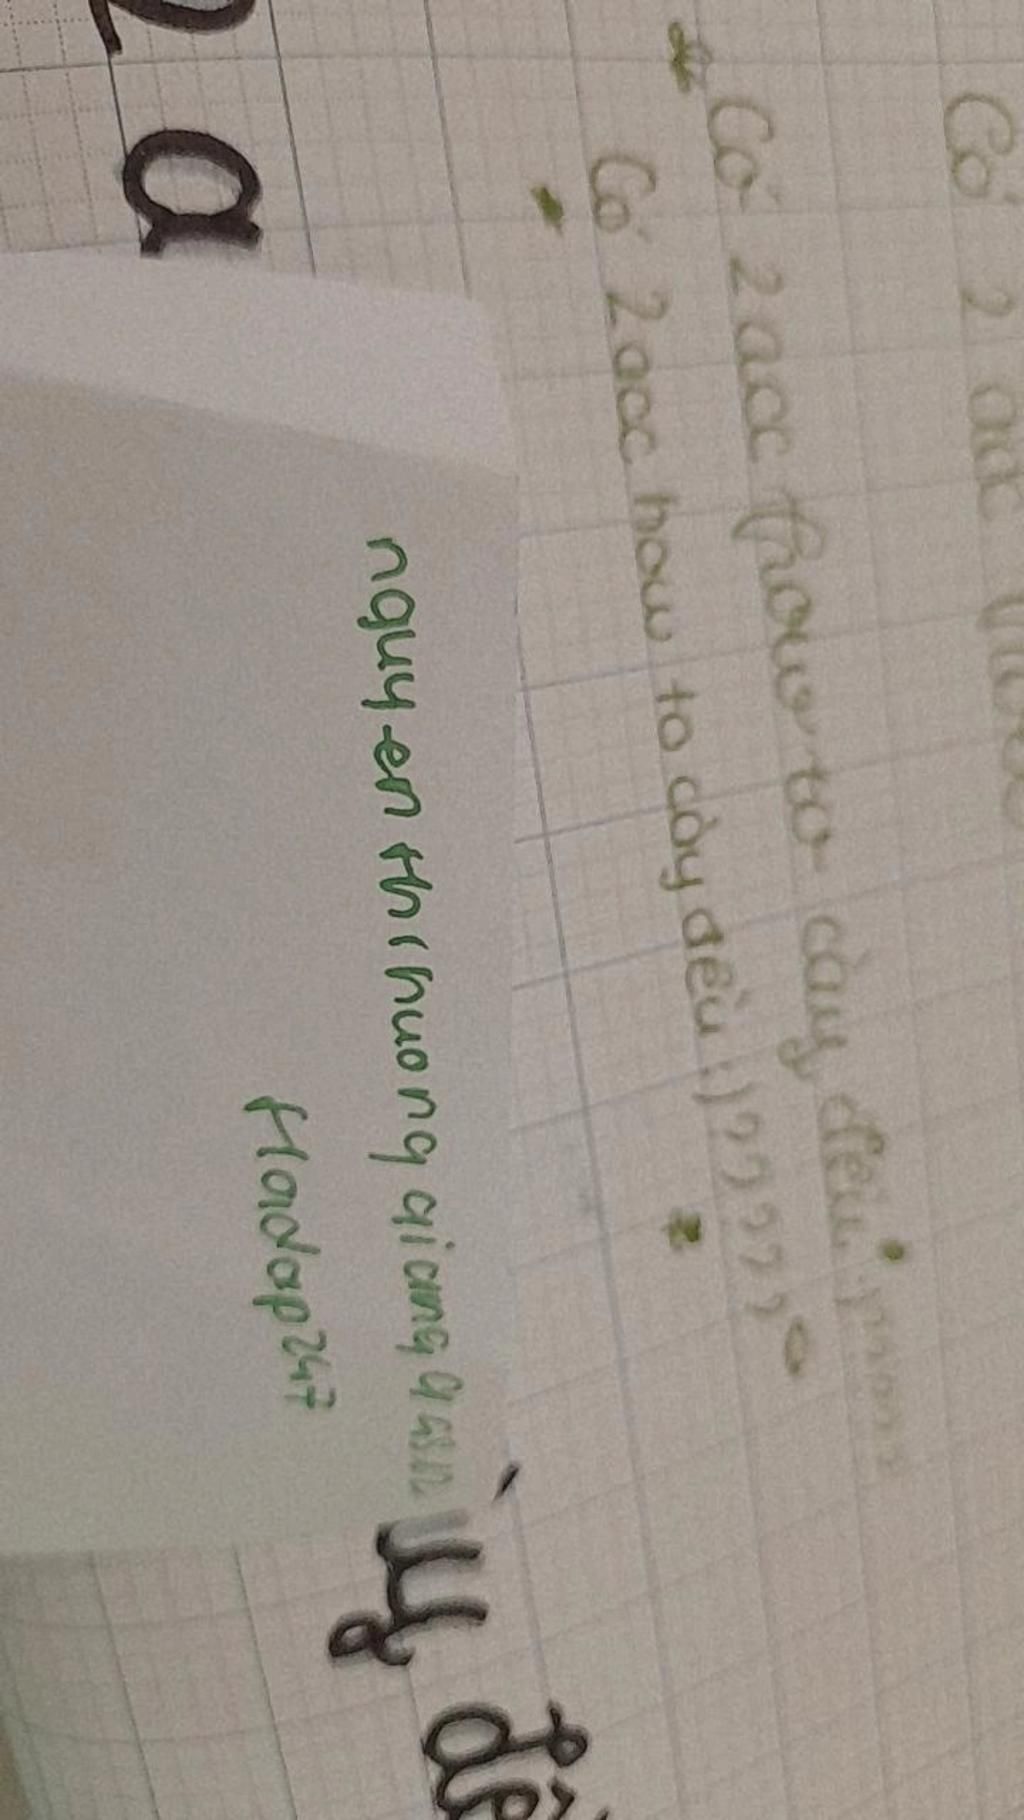 Có 2 acc
Có 2 acc how to cày đều
Có 2 acc how to cày đều :)))))
nguyen thi huong giang
Hoidap247
2 a
ày đề